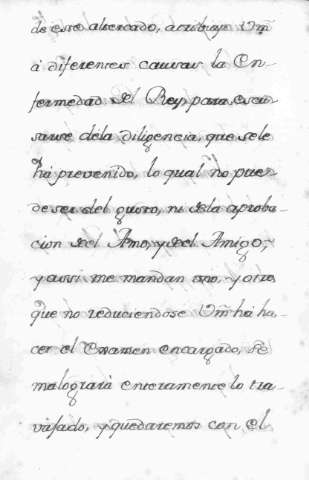 de este altercado, atribuye Vm̃
à diferentes causas la En-
fermedad del Rey, para escu-
sarse dela diligencia, que sele
há prevenido, lo qual no pue-
de ser del gusto, ni dela aproba-
cion del Amo, y del Amigo,
y assi me mandan uno, y otro,
que no reduciendose Vm̃ há ha-
cer el Examen encargado, se
malograrà enteramente lo tra-
vajado, y quedaremos con el